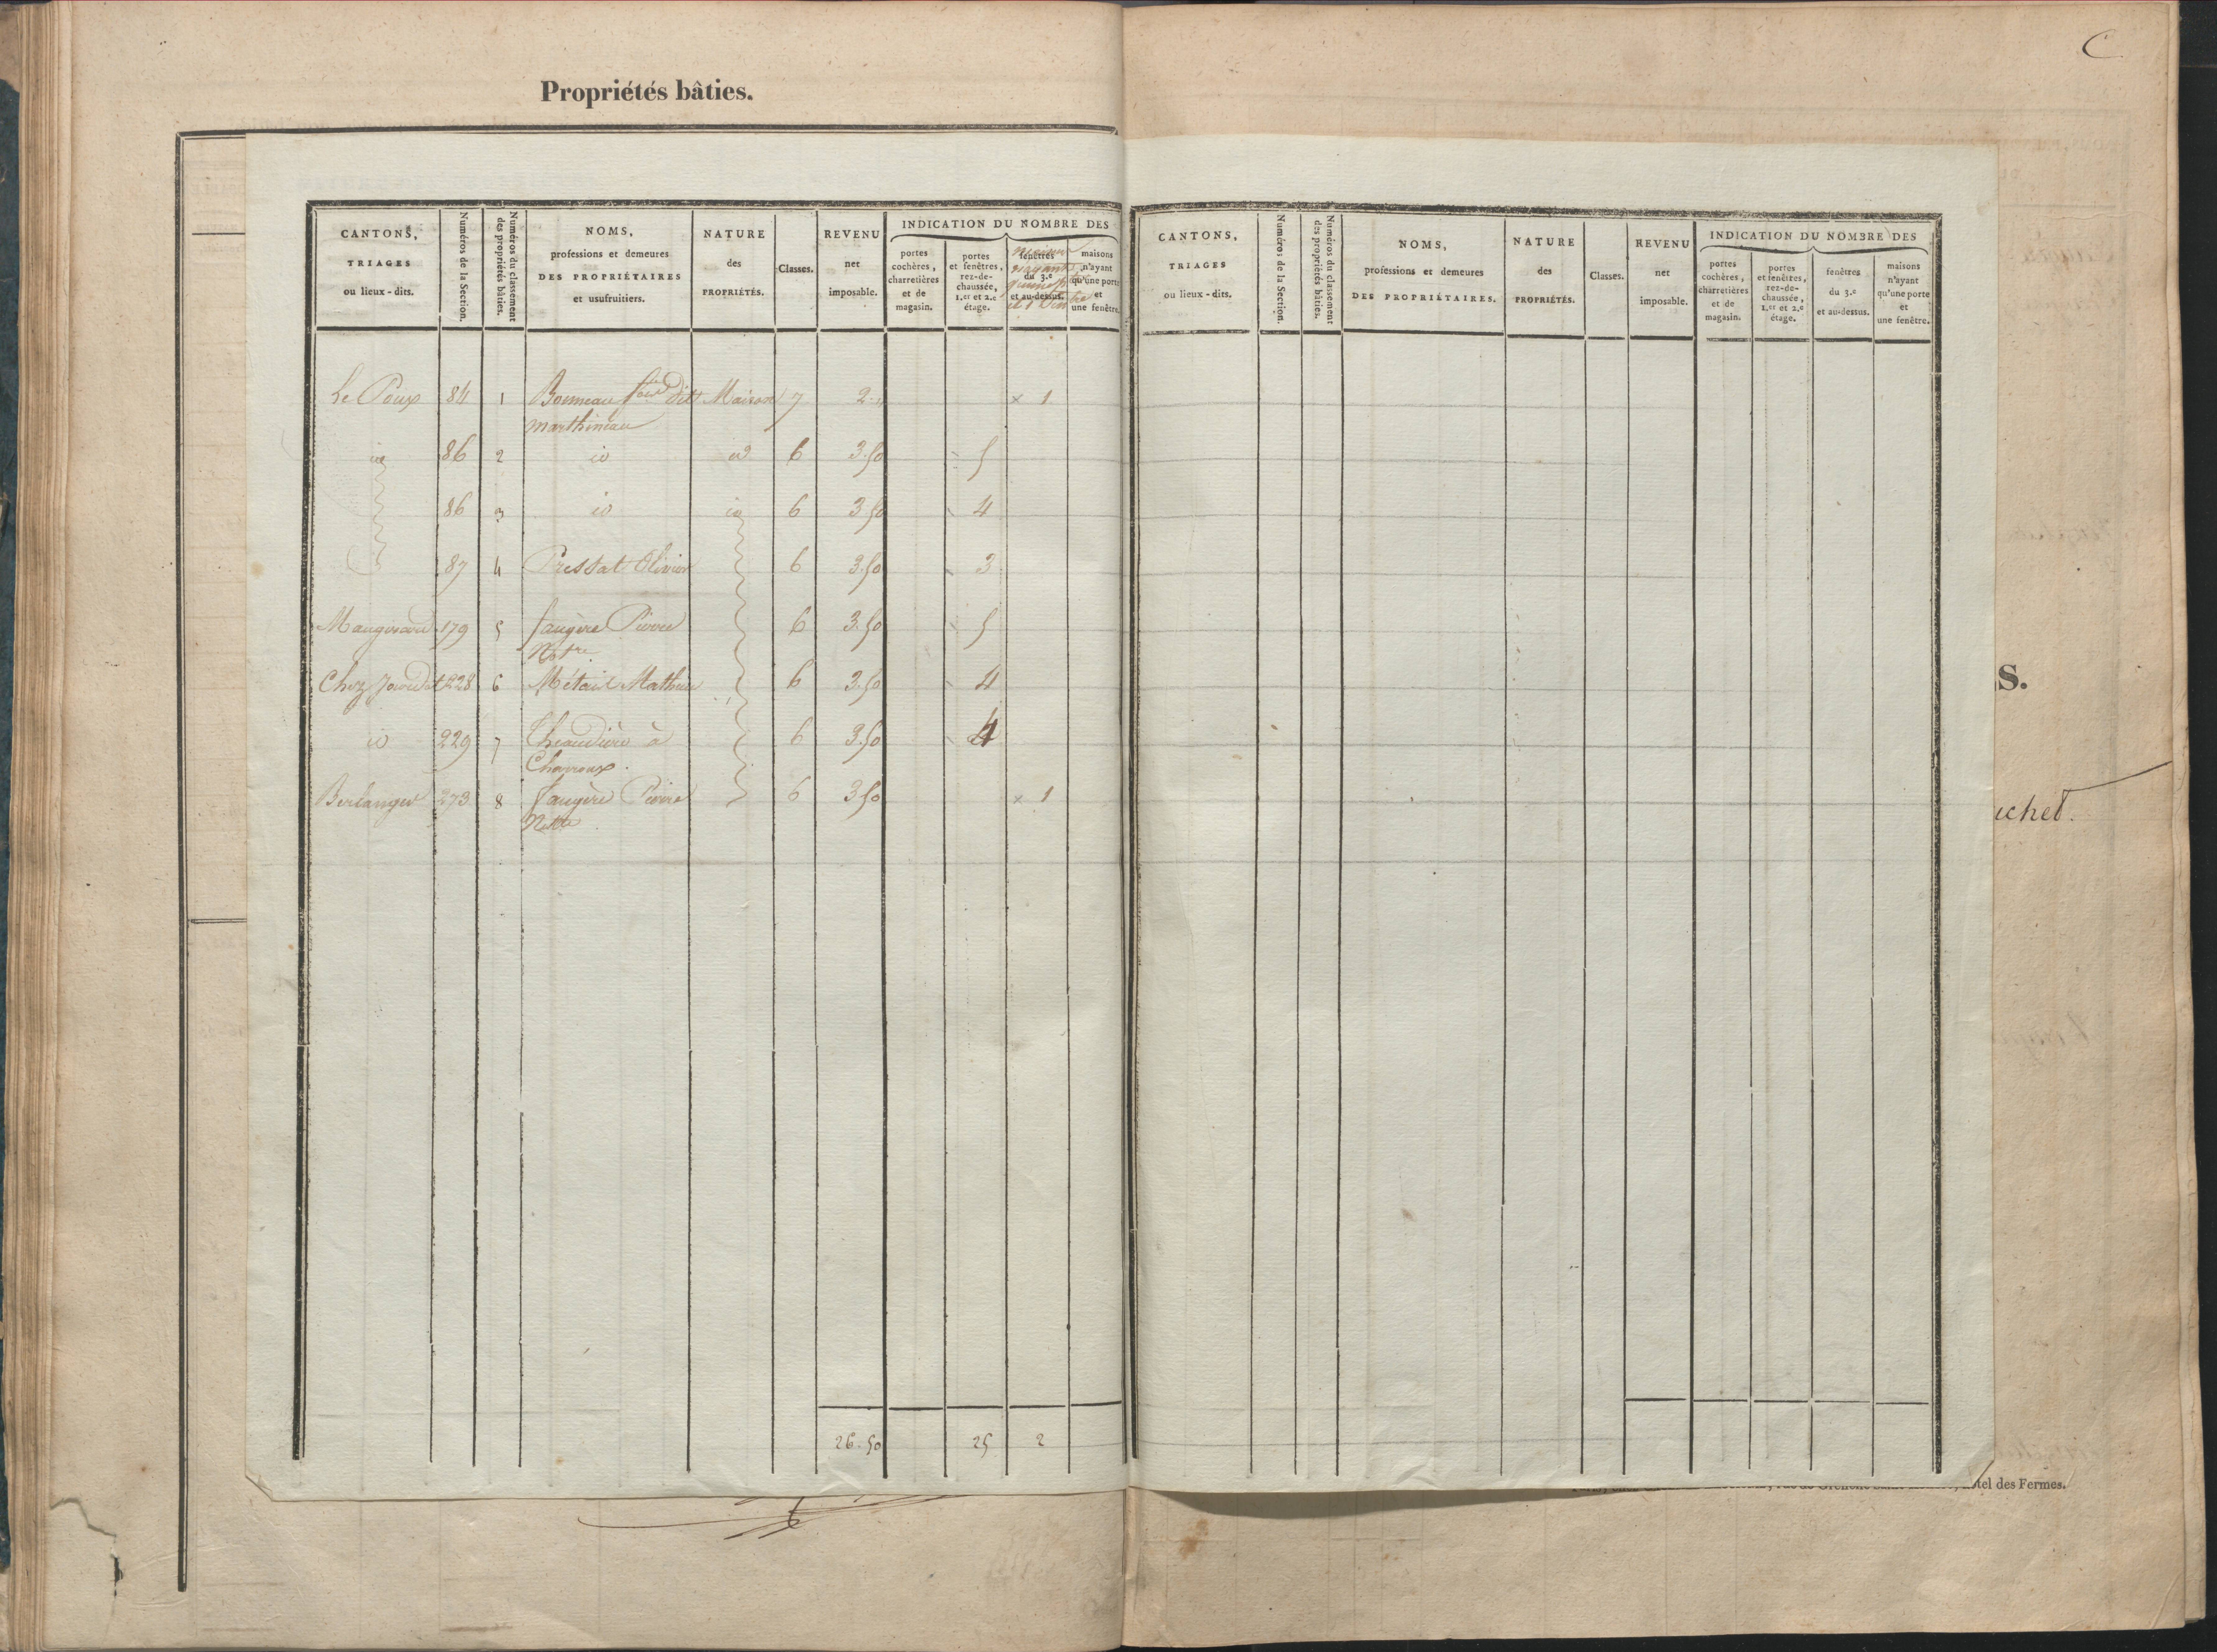 C
Propriétés bâties.
CANTONS, TRIAGES ou lieux-dits.
Numéros de la Section.
Numéros du classement des propriétés bâties.
NOMS, professions et demeures DES PROPRIÉTAIRES et usufruitiers.
NATURE des PROPRIÉTÉS.
Classes.
REVENU net imposable.
INDICATION DU NOMBRE DES
portes cochères, charretières et de magasin.
portes et fenêtres, rez-de-chaussée, 1.er et 2.e étage.
fenêtres du 3.e et au-dessus.
maisons n'ayant qu'une porte et une fenêtre.
Le Poux 84 1 Bonneau dit Maison 7 2 " × 1
marthineau
id 86 2 id id 6 3.50 5
86 3 id id 6 3.50 4
87 4 Pressat Olivier 6 3.50 3
179 5 faugère Pierre 6 3.50 5
Not.re
Chez 228 6 Métail Mathieu 6 3.50 4
id 229 7 à 6 3.50 4
Charroux.
Berlanger 273 8 faugère Pierre 6 3.50 × 1
26.50 25 2
CANTONS, TRIAGES ou lieux-dits.
Numéros de la Section.
Numéros du classement des propriétés bâties.
NOMS, professions et demeures DES PROPRIÉTAIRES.
NATURE des PROPRIÉTÉS.
Classes.
REVENU net imposable.
INDICATION DU NOMBRE DES
portes cochères, charretières et de magasin.
portes et fenêtres, rez-de-chaussée, 1.er et 2.e étage.
fenêtres du 3.e et au-dessus.
maisons n'ayant qu'une porte et une fenêtre.
S.
uchet.
tel des Fermes.